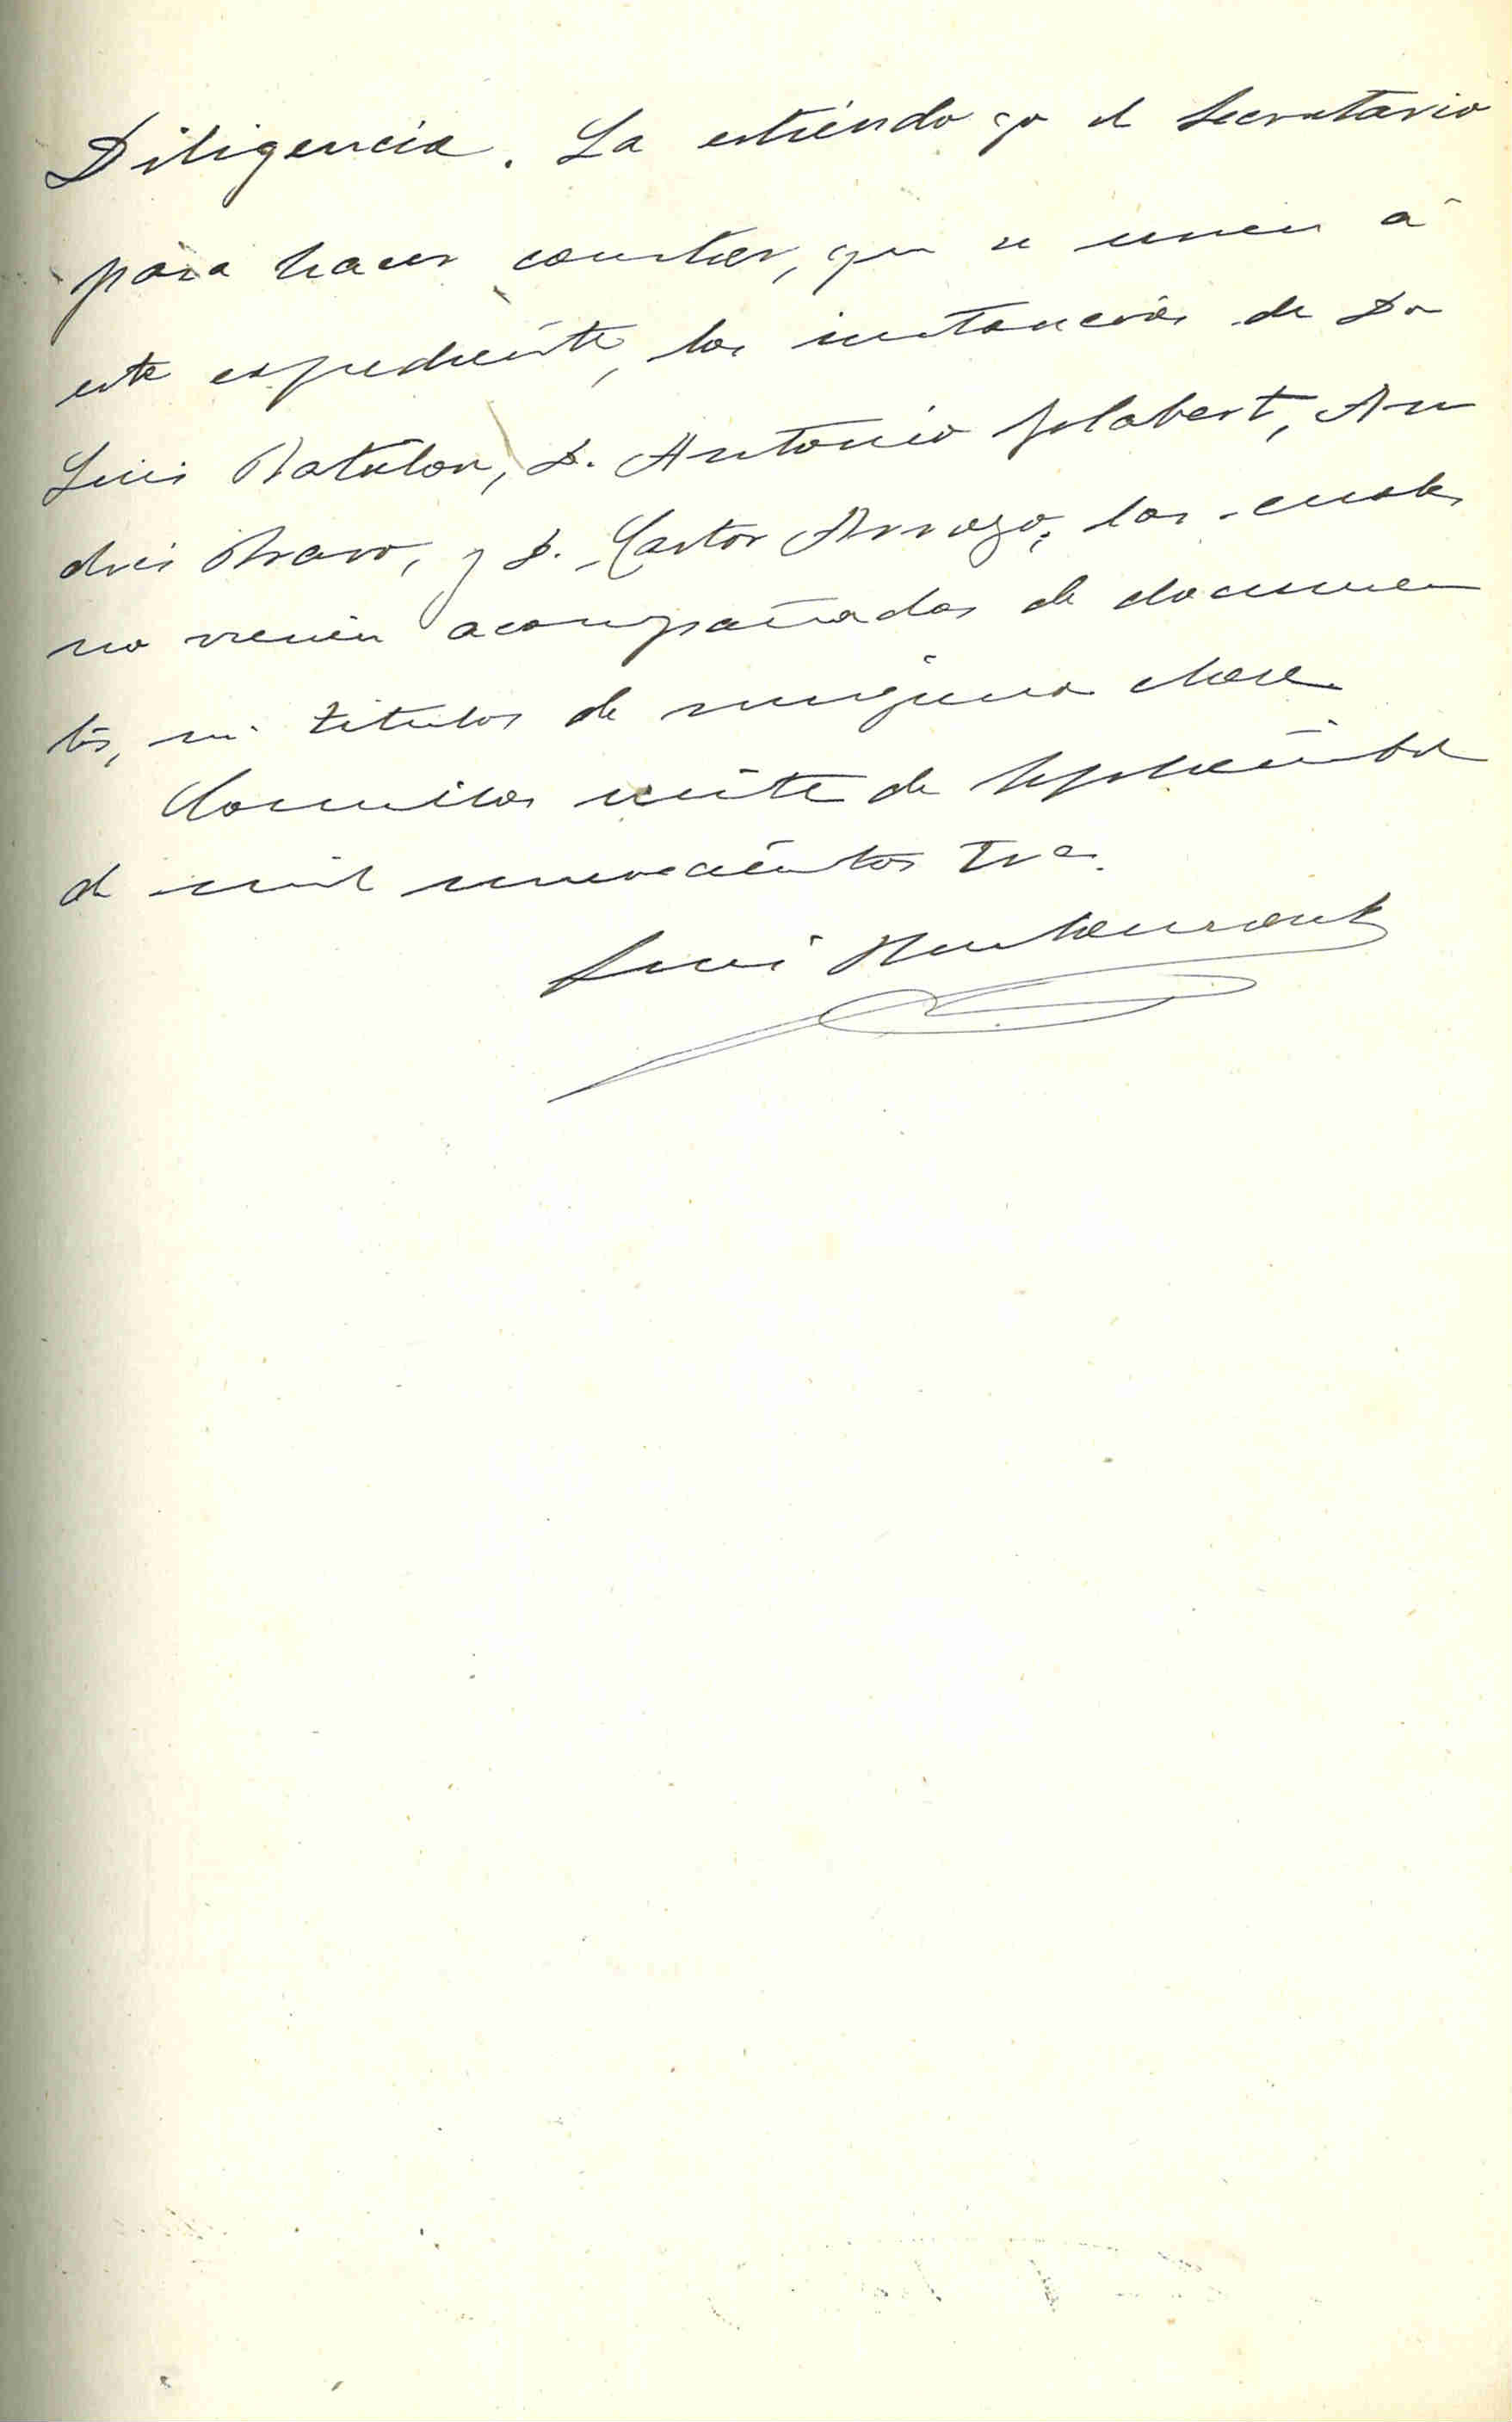 Diligencia. La extiendo yo el Secretario
para hacer constar, que se unen á
este expediente, las instancias de Dn
Luis Batalon, D. Antonio Gelabert, An
drés Bravo, y D. Castor Arroyo, las cuales
no vienen acompañadas de documen
tos, ni titulos de ninguna clase.
Cornellas veinte de Septiembre
de mil novecientos tres.
Luis